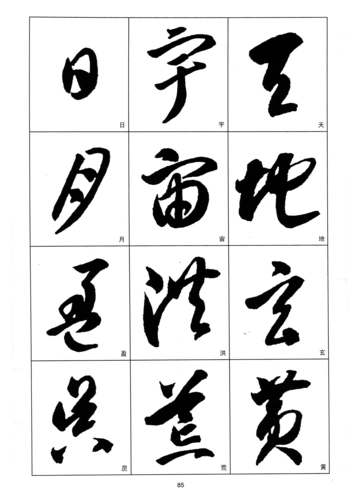 天地玄黄
天地玄黄
宇宙洪荒
宇宙洪荒
日月盈昃
日月盈昃
85